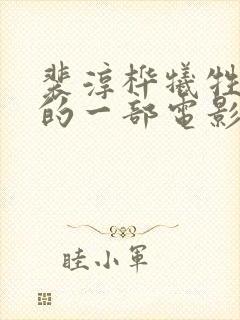 裴淳桦犠牲
的一部電影
睦小軍